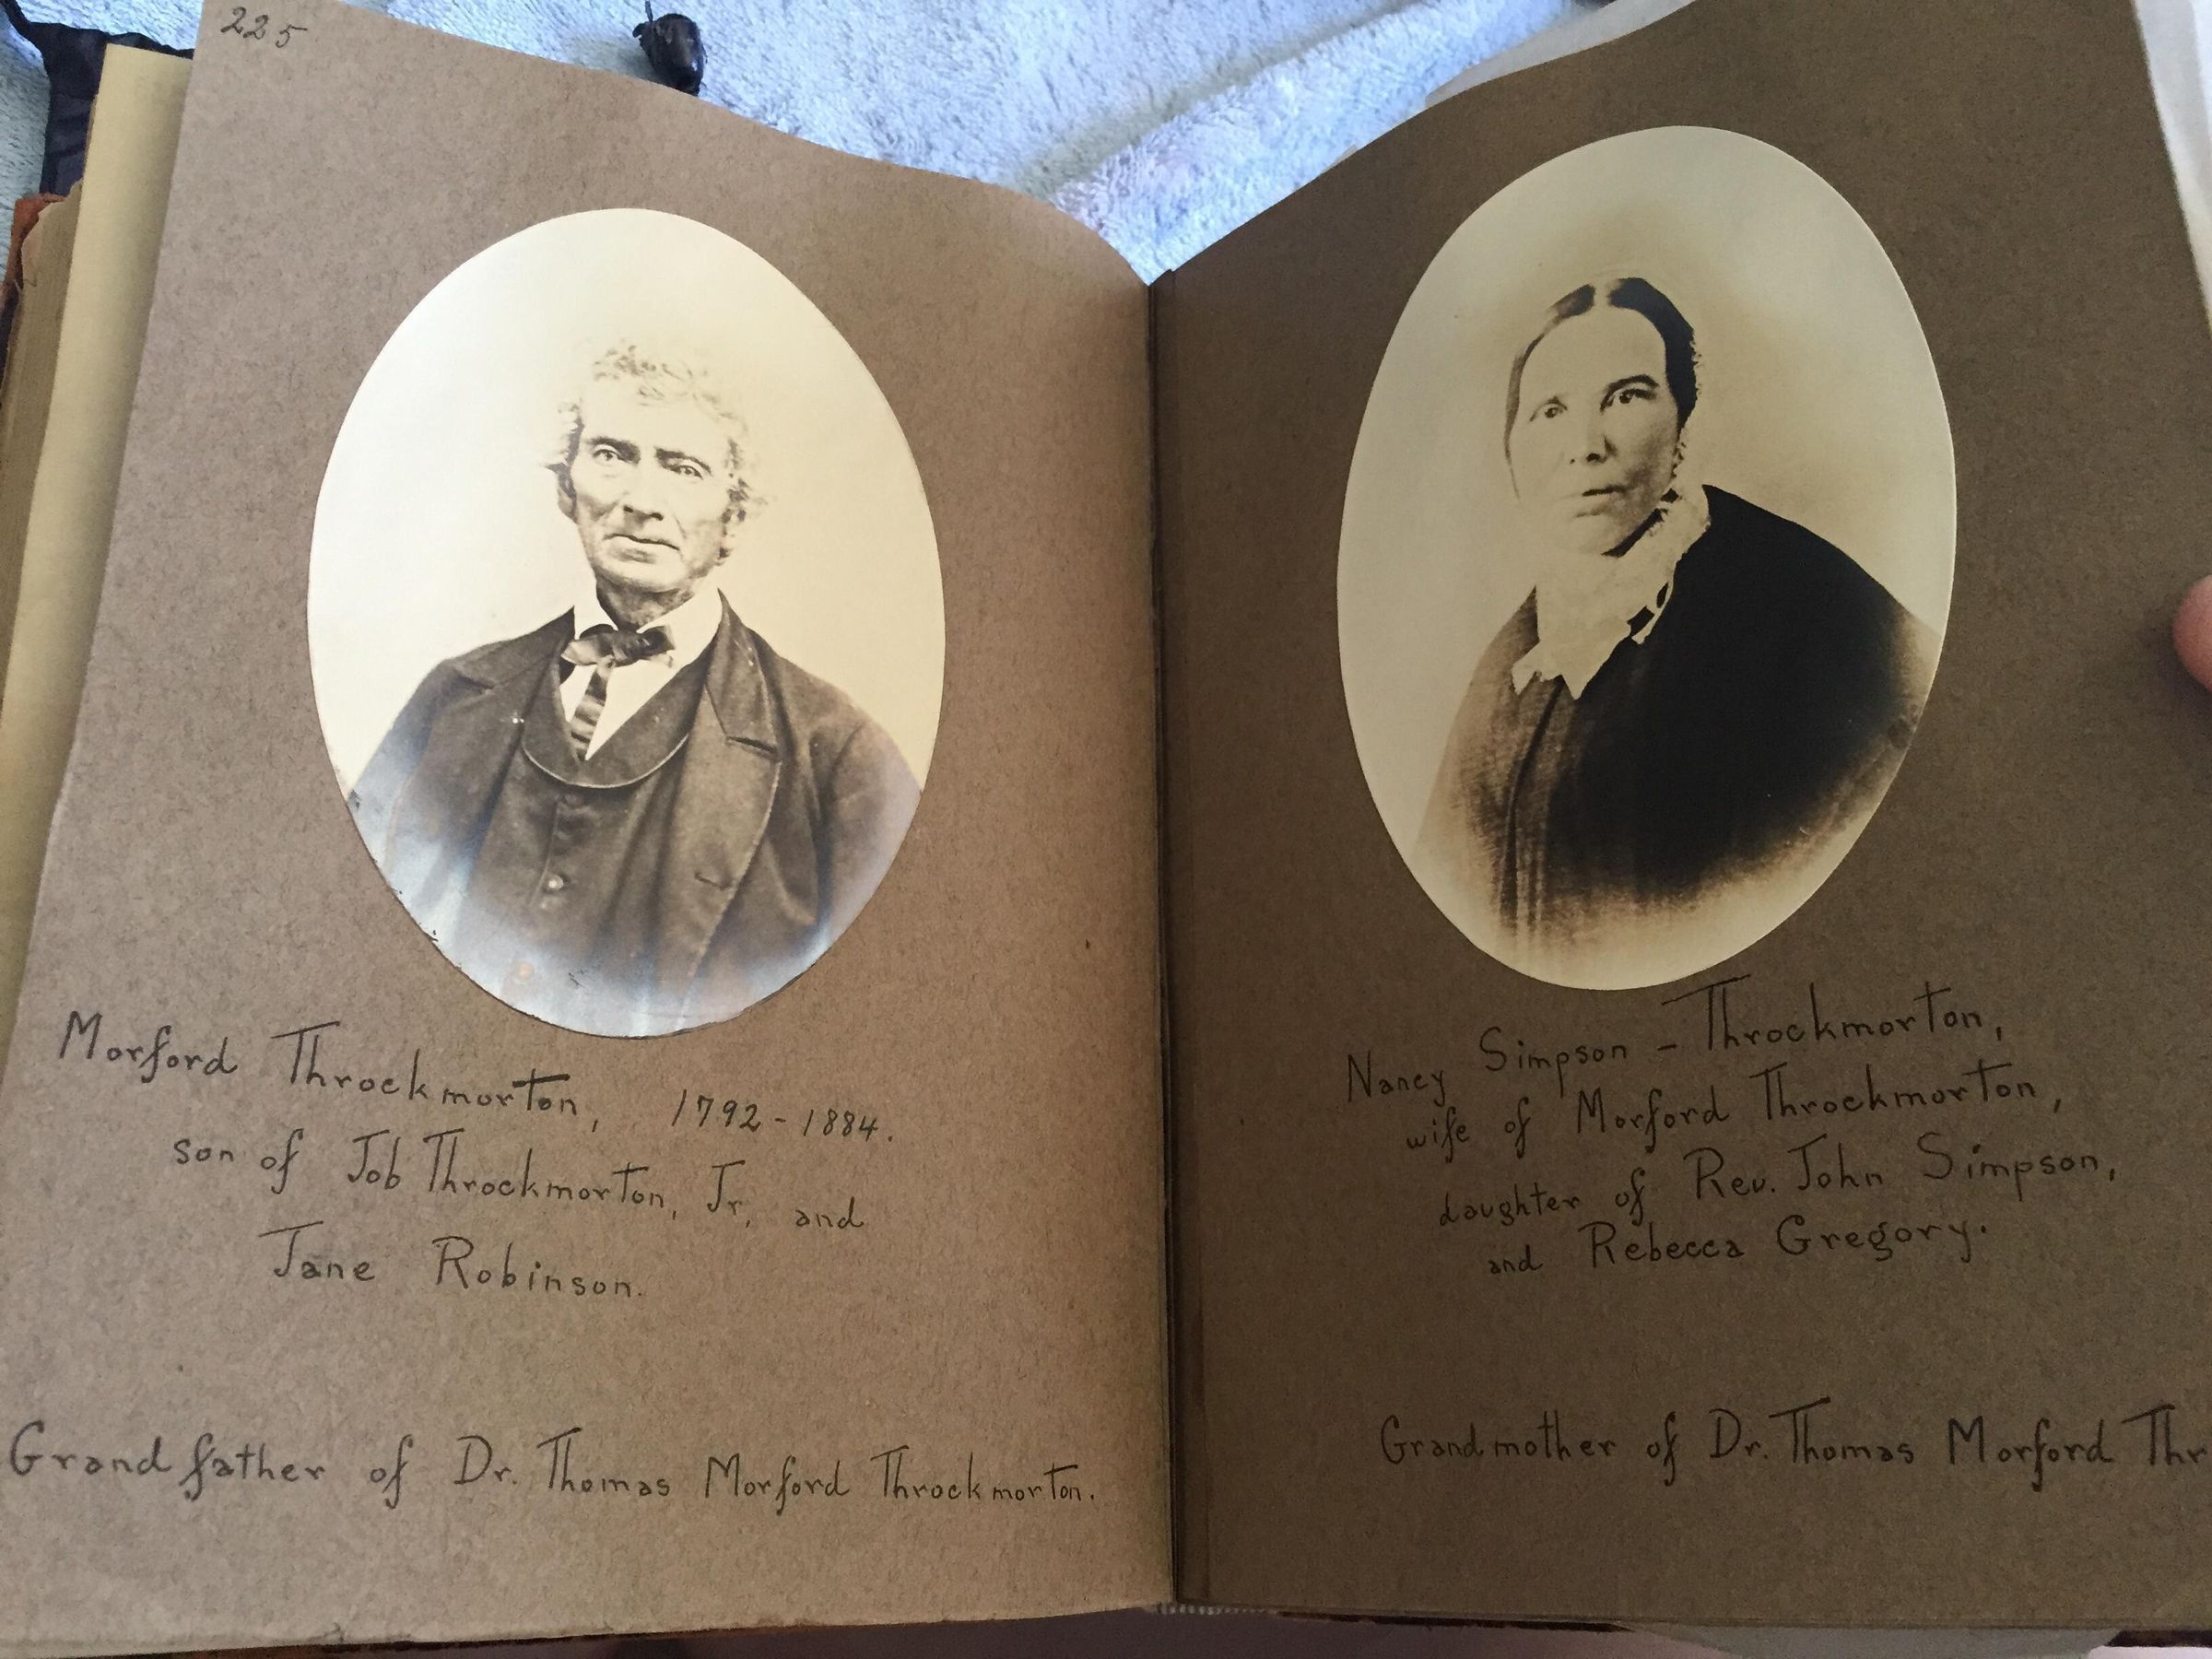 225
Morford Throckmorton, 1792-1884.
son of Job Throckmorton, Jr. and
Jane Robinson.
Grandfather of Dr. Thomas Morford Throckmorton.
Nancy Simpson - Throckmorton,
wife of Morford Throckmorton,
daughter of Rev. John Simpson,
and Rebecca Gregory.
Grandmother of Dr. Thomas Morford Thr